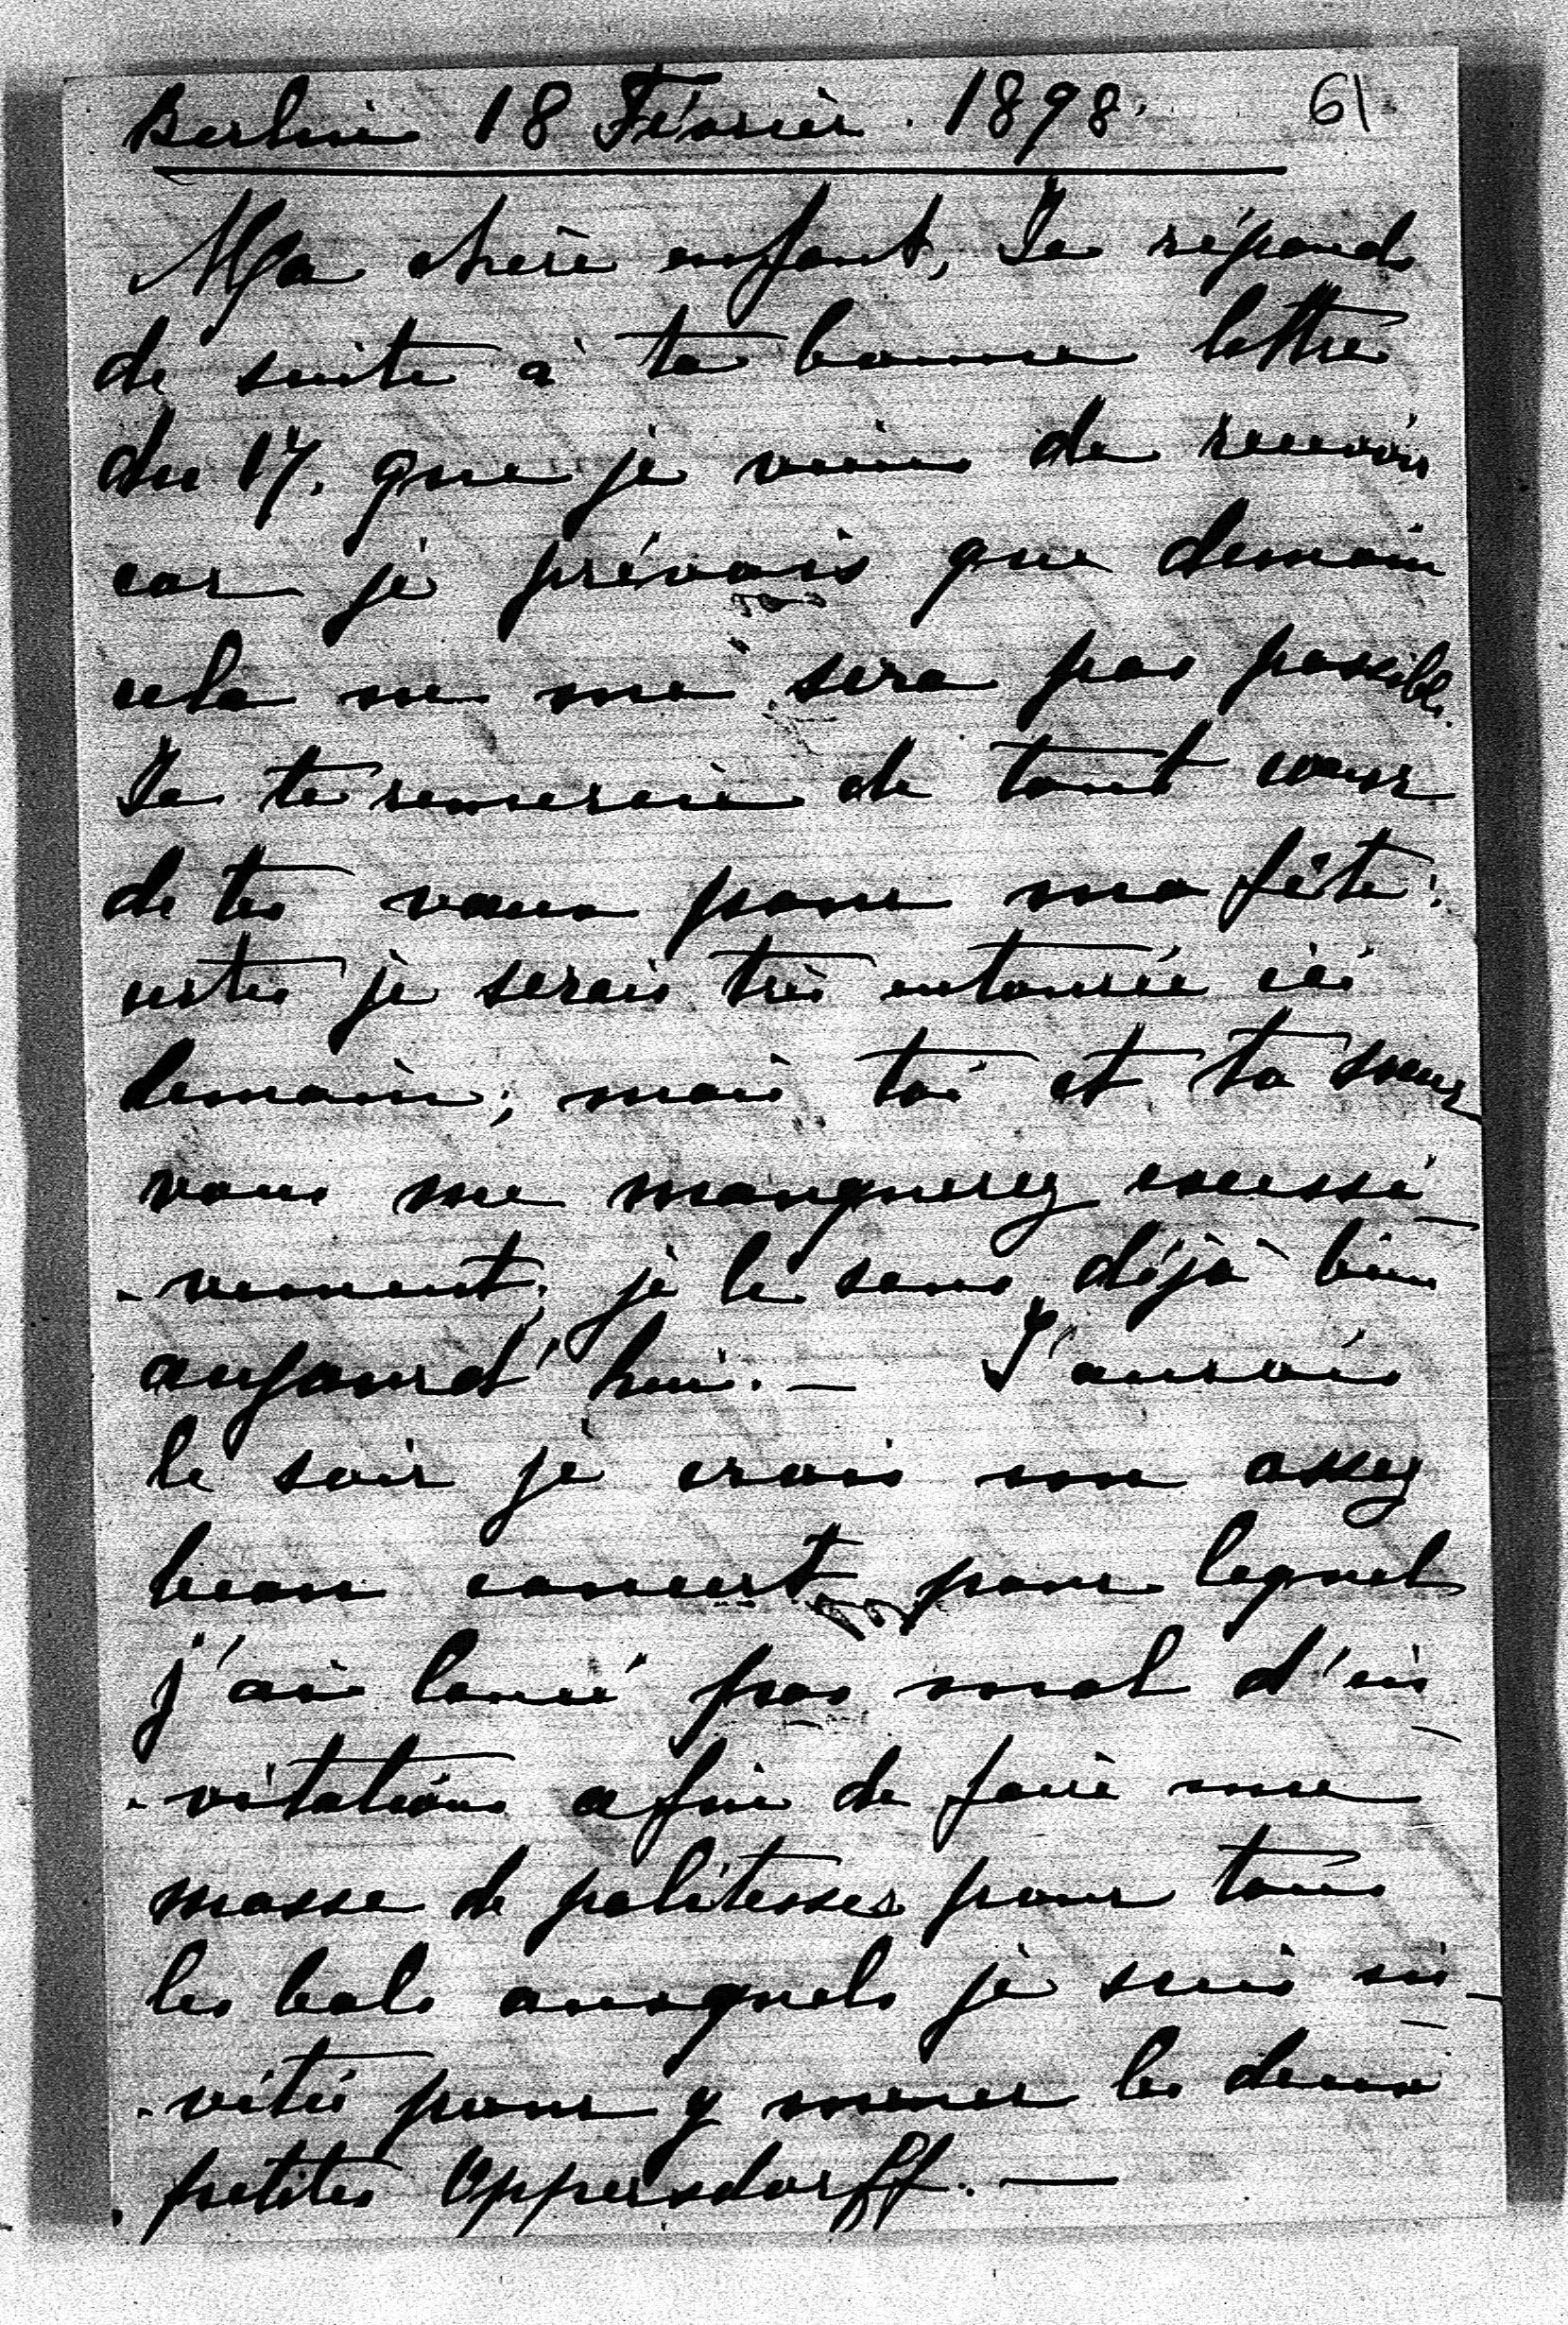 Berlin 18 Février. 1898. 61
Ma chère enfant, Je réponds
de suite à ta bonne lettre
du 17. que je viens de recevoir
car je prévois que demain
cela ne me sera pas possible.
Je te remercie de tout coeur
de tes voeux pour ma fête:
certes je serais très entourée ici
demain; mais toi et ta soeur
vous me manquerez excessi-
-vement; je le sens déjà bien
aujourd'hui. — J'aurais
le soir je crois un assez
beau concert pour lequel
j'ai lancé pas mal d'in-
-vitations afin de faire une
masse de politesses pour tous
les bals auxquels je suis in-
-vitée pour y mener les deux
petites Oppersdorff. —